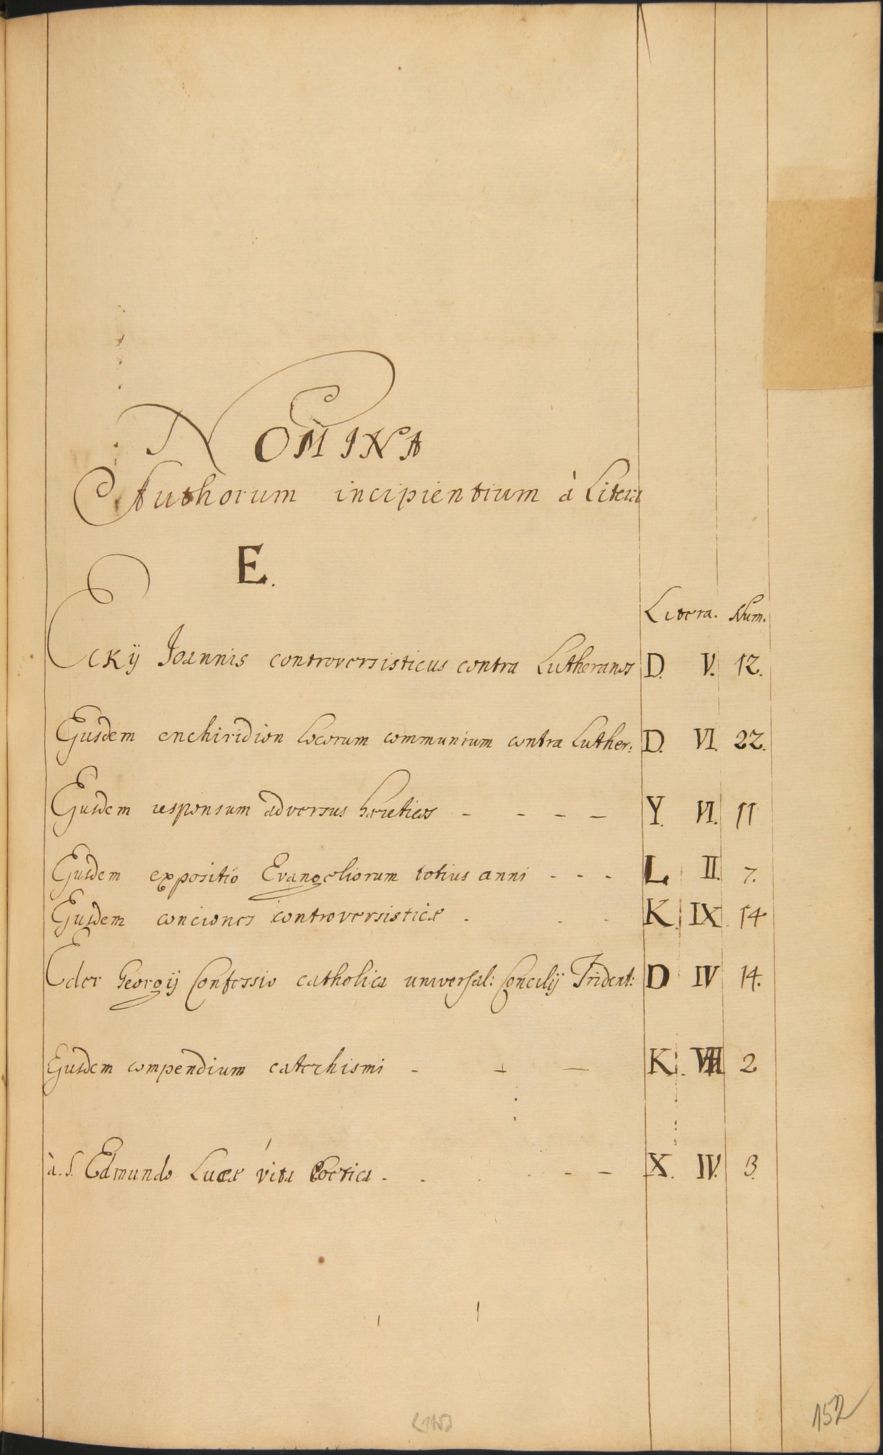 NOMINA
Authorum incipientium à Litera
E.
Litera. Num.
Eckÿ Joannis controversisticus contra Lutheranos D. V. 12.
Ejusdem enchiridion locorum communium contra Luther: D. VI. 22.
Ejusdem responsum adversus hæreticos - - - - Y. VI. 11
Ejusdem expositio Evangeliorum totius anni - - - L II. 7.
Ejusdem conciones controversisticæ - - - K. IX. 14
Eder Georgÿ Confessio catholica universal: Concilÿ Trident: D IV 14.
Ejusdem compendium catechismi - - - K. 2
à. S. Edmundo Lucæ vita Poetica - - - - - X. IV. 3.
152